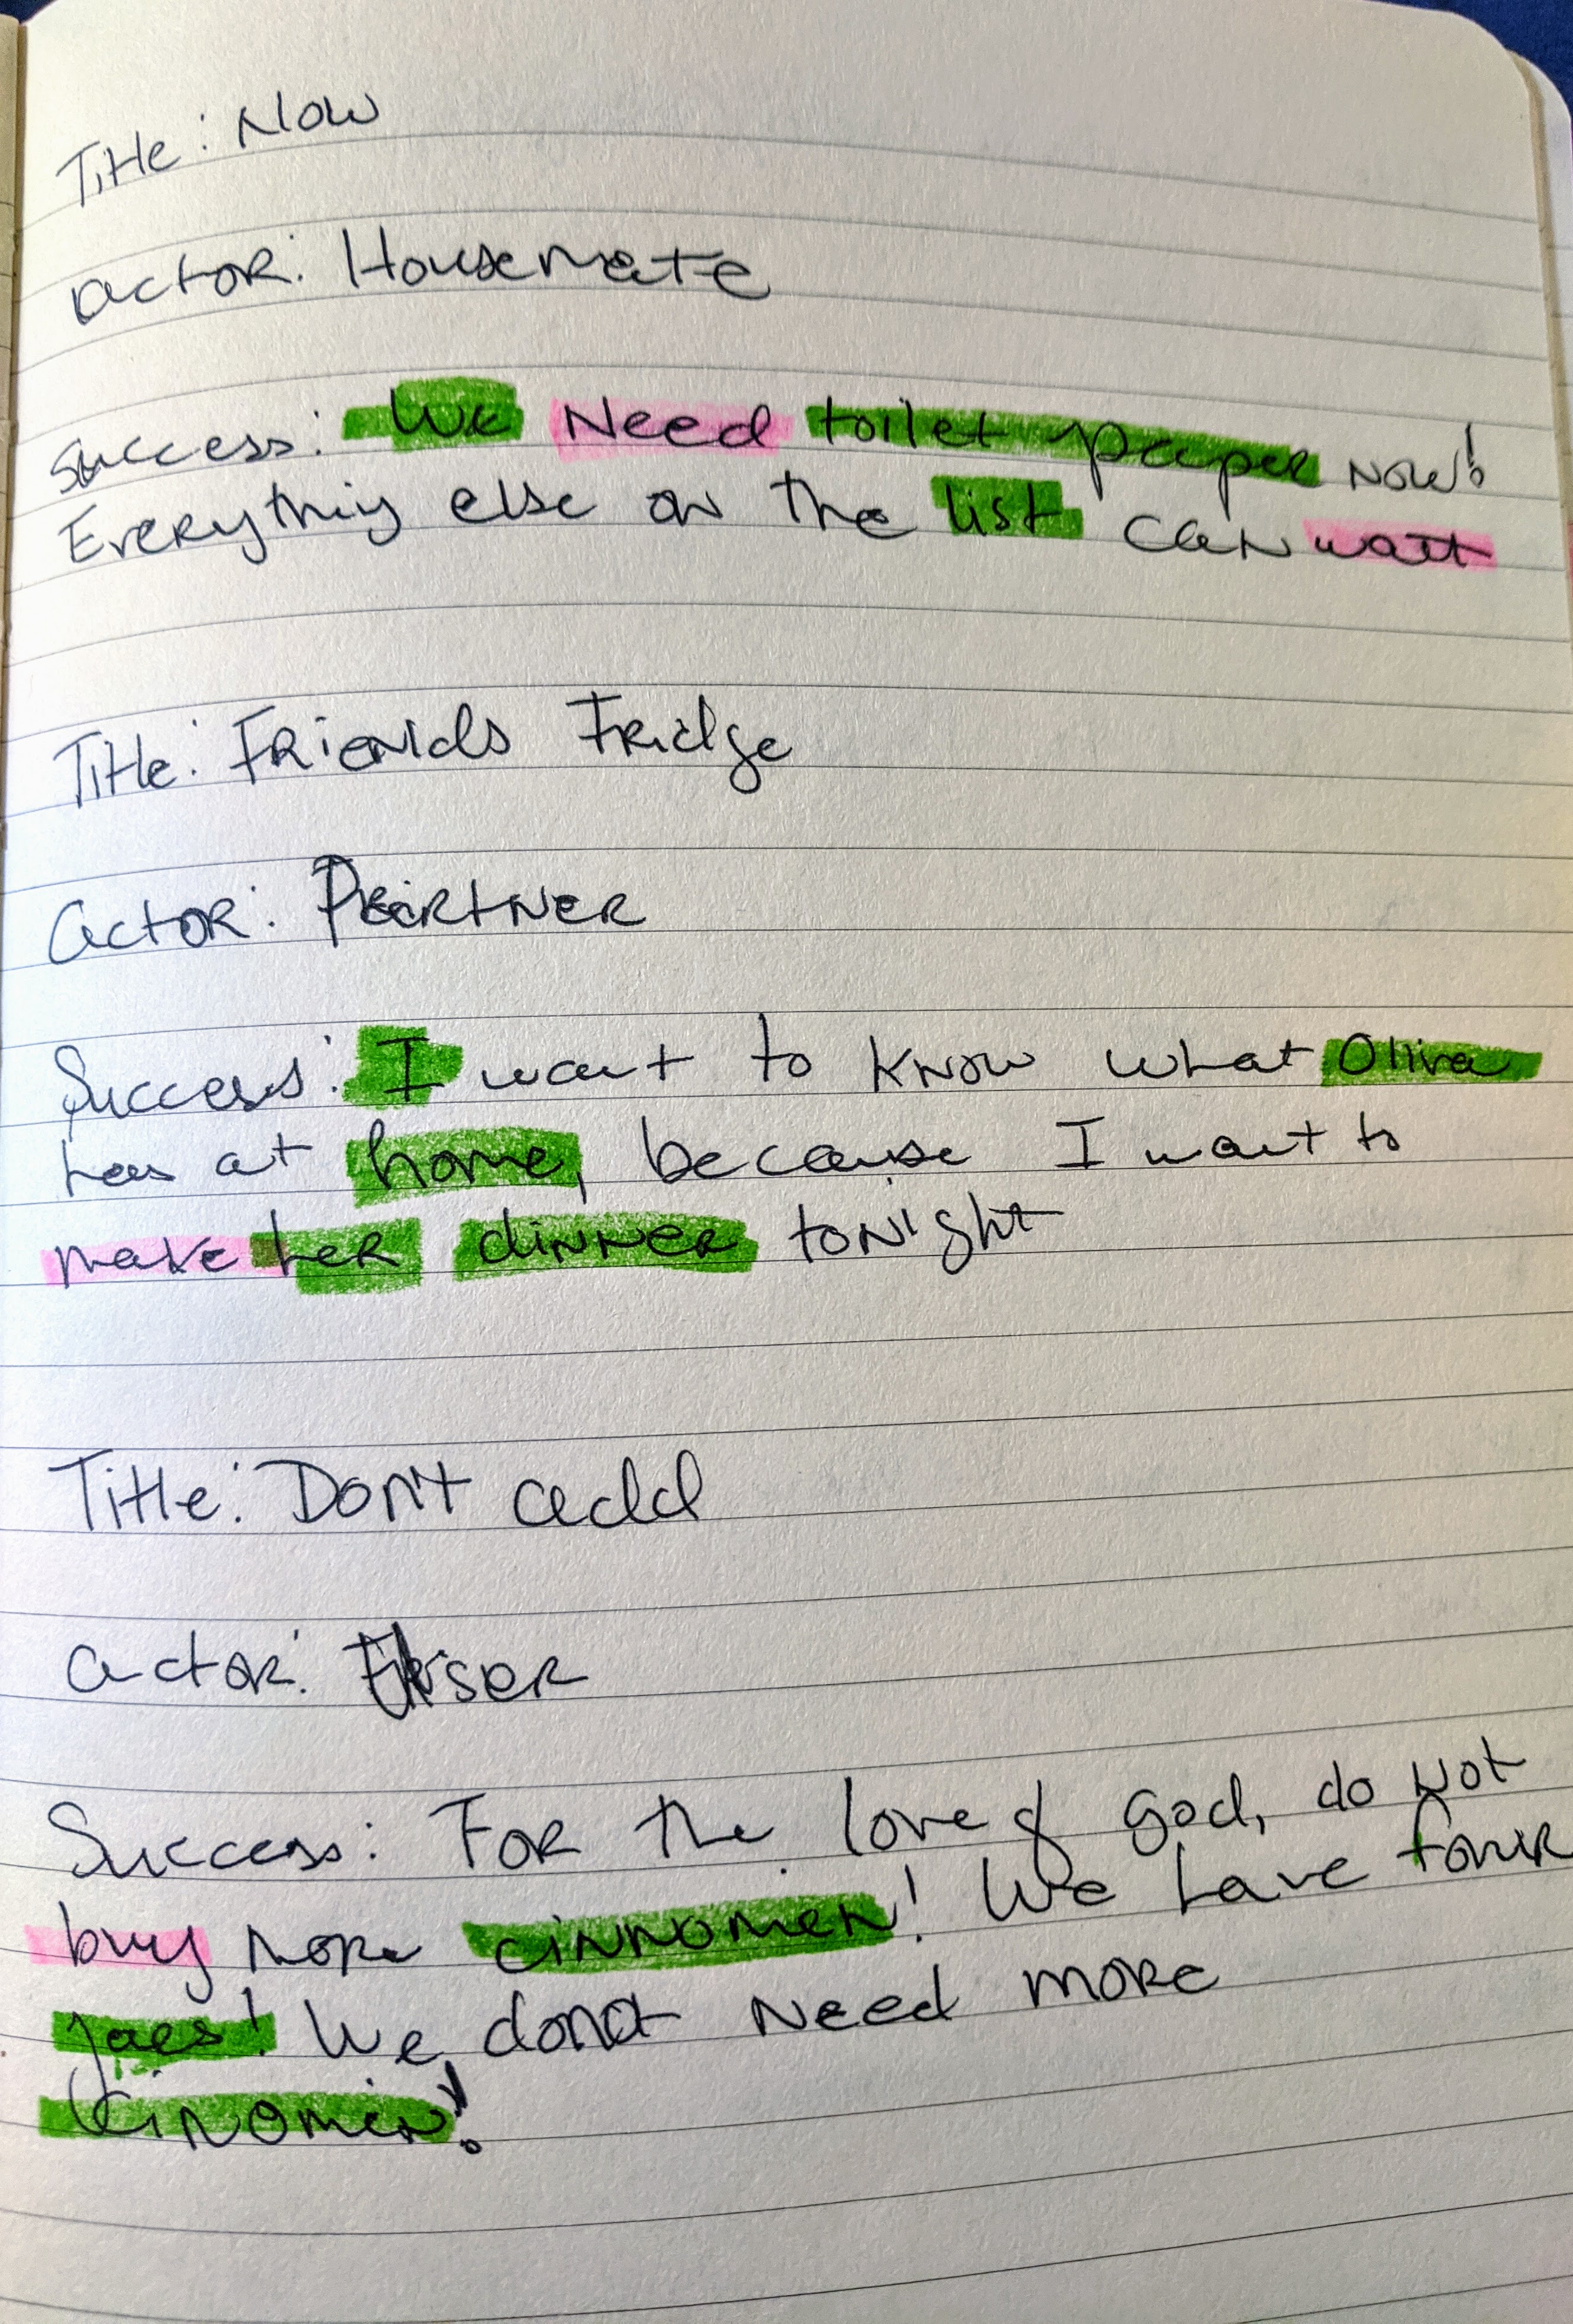 Title: Now
actor: Housemate
Success: We Need toilet paper now!
Everything else on the list can wait
Title: Friends Fridge
actor: Partner
Success: I want to know what Oliva
has at home, because I want to
make her dinner tonight
Title: Don't add
actor: User
Success: For the love of god, do not
buy more cinnomen! We have four
jars! We, donot need more
Cinomen!